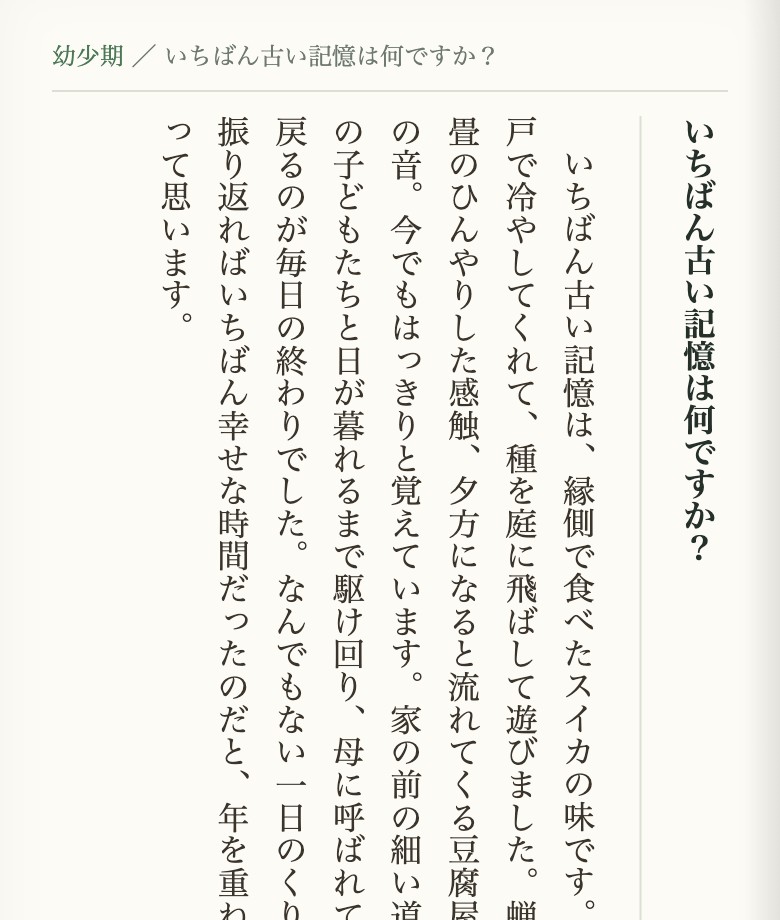 幼少期 ／ いちばん古い記憶は何ですか？
いちばん古い記憶は何ですか？
いちばん古い記憶は、縁側で食べたスイカの味です。
戸で冷やしてくれて、種を庭に飛ばして遊びました。蝉
畳のひんやりした感触、夕方になると流れてくる豆腐屋
の音。今でもはっきりと覚えています。家の前の細い道
の子どもたちと日が暮れるまで駆け回り、母に呼ばれて
戻るのが毎日の終わりでした。なんでもない一日のくり
振り返ればいちばん幸せな時間だったのだと、年を重ね
って思います。